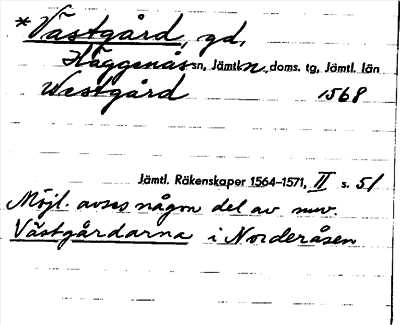 *Västgård, gd,
Häggenås sn, Jämtl. n. doms. tg, Jämtl. län
Westgård 1568
Jämtl. Räkenskaper 1564–1571, II s. 51
Möjl. avses någon del av nuv.
Västgårdarna i Norderåsen